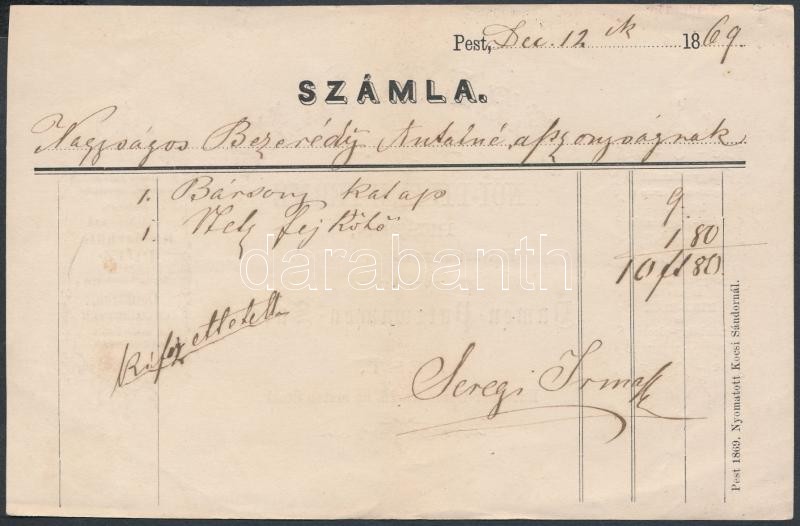 Pest, Dec. 12 ik 1869.
SZÁMLA.
Nagyságos Bezerédy Antalné aszonyságnak
1. Bársony kalap 9.
1. Netz fejkötő 1 80
10 ft 80
Kifizettetett
Seregi Irma
Pest 1869. Nyomatott Kocsi Sándornál.
darabanth